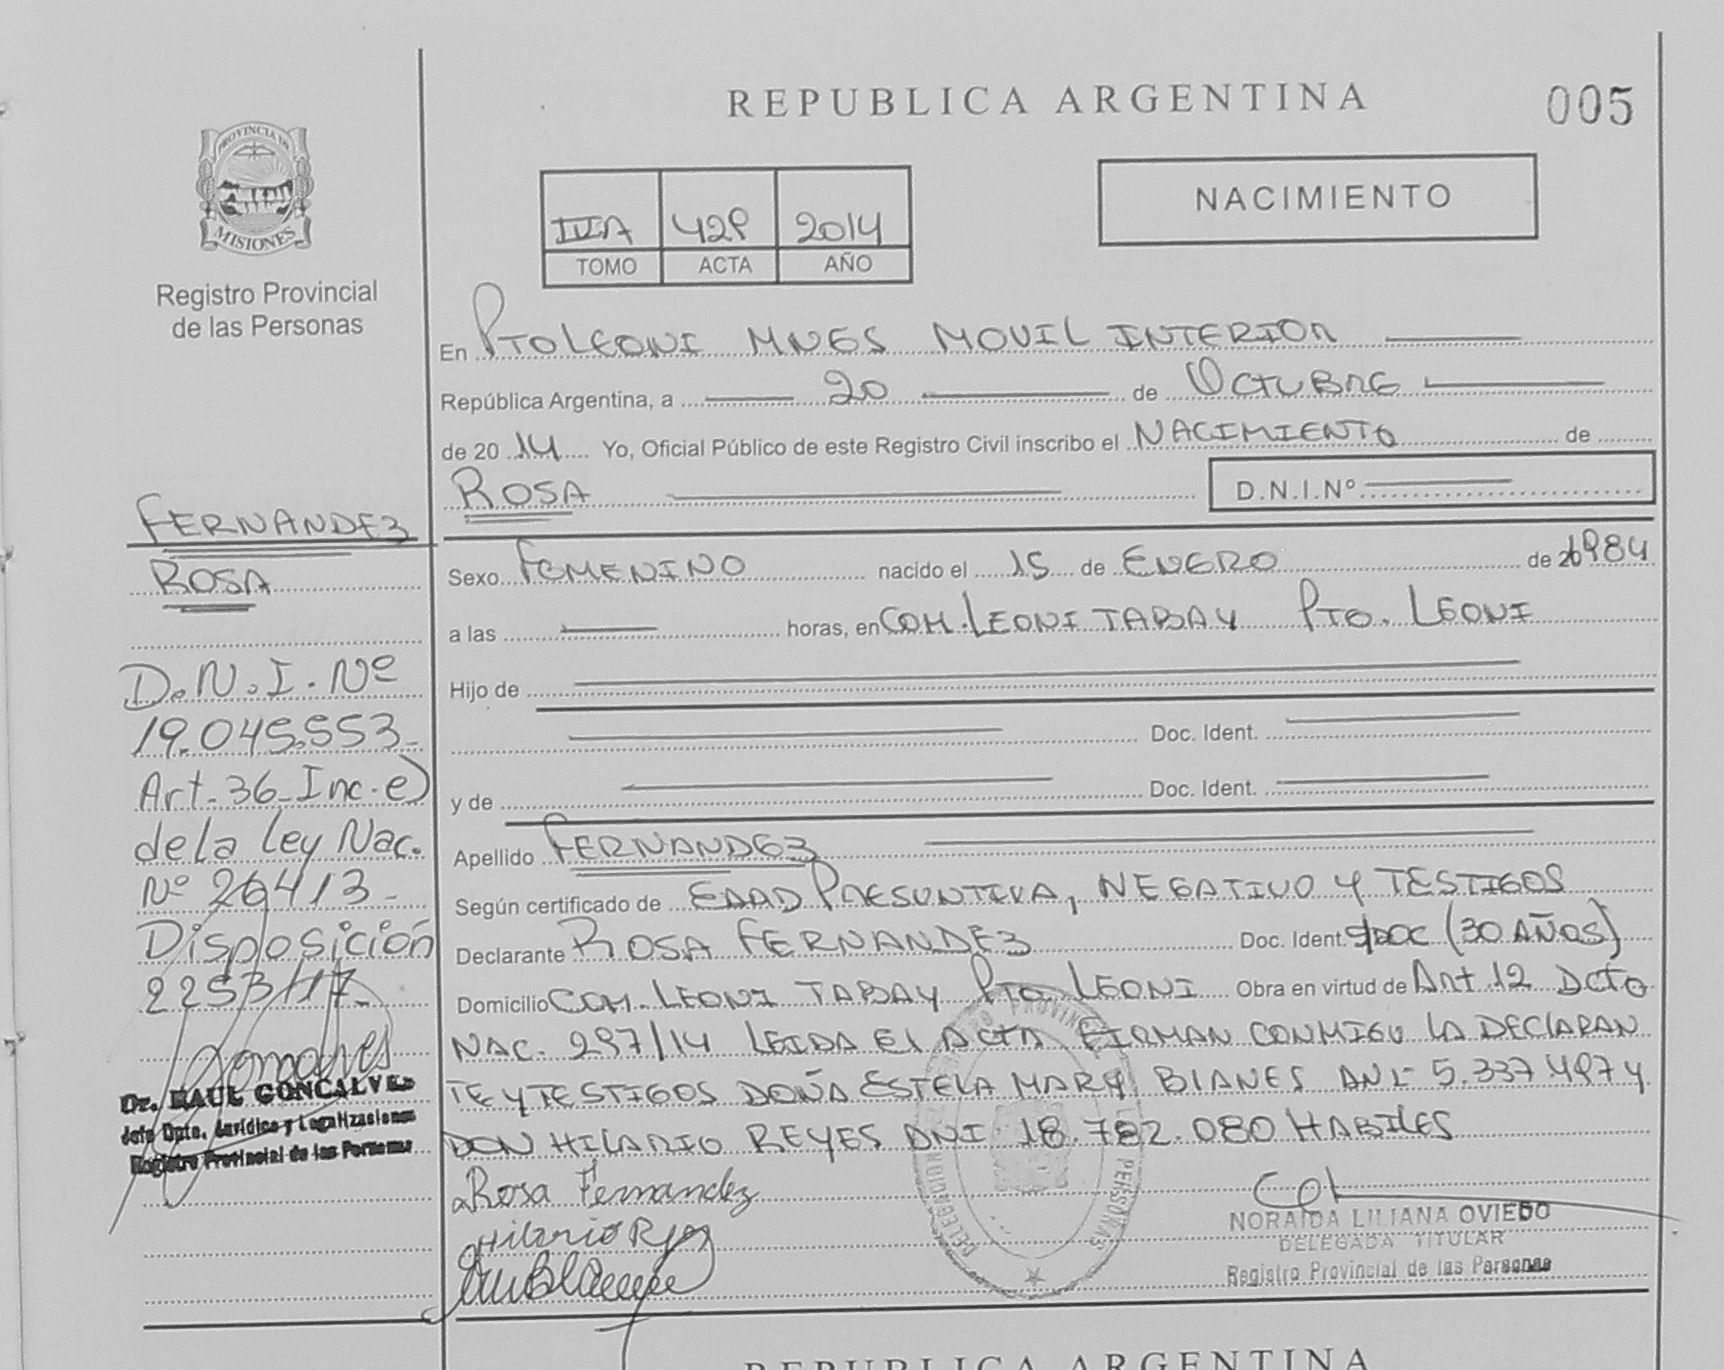 REPUBLICA ARGENTINA
005
PROVINCIA DE
MISIONES
Registro Provincial
de las Personas
IIA 429 2014
TOMO ACTA AÑO
NACIMIENTO
En PTO LEONI MNES MOVIL INTERIOR
República Argentina, a 20 de OCTUBRE
de 20 14 Yo, Oficial Público de este Registro Civil inscribo el NACIMIENTO de
ROSA
D.N.I.Nº
FERNANDEZ
ROSA
D.N.I. Nº
19.045.553-
Art-36-Inc.e)
de la Ley Nac.
Nº 26413-
Disposición
2253/17-
Dr. RAUL GONCALVES
Jefe Dpto. Jurídico y Legalizaciones
Registro Provincial de las Personas
Sexo FEMENINO nacido el 15 de ENERO de 1984
a las horas, en COM. LEONI TABAY PTO. LEONI
Hijo de
Doc. Ident.
y de Doc. Ident.
Apellido FERNANDEZ
Según certificado de EDAD PRESUNTIVA, NEGATIVO Y TESTIGOS
Declarante ROSA FERNANDEZ Doc. Ident. S/DOC (30 AÑOS)
Domicilio COM. LEONI TABAY PTO LEONI Obra en virtud de Art. 12 DCTO
NAC. 297/14 LEIDA El ACTA FIRMAN CONMIGO LA DECLARAN
TE Y TESTIGOS DOÑA ESTELA MARY BIANES DNI 5.337.497 Y
DON HILARIO REYES DNI 18.782.080 HABILES
Rosa Fernandez
Hilario Reyes
NORAIDA LILIANA OVIEDO
DELEGADA TITULAR
Registro Provincial de las Personas
REPUBLICA ARGENTINA